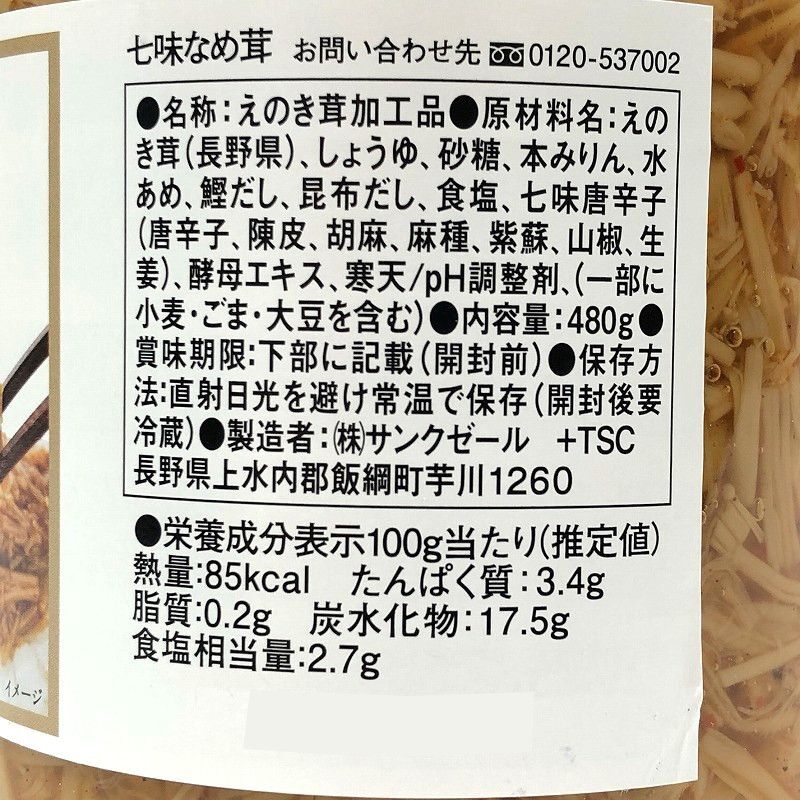 七味なめ茸 お問い合わせ先 0120-537002
●名称：えのき茸加工品●原材料名：えの
き茸（長野県）、しょうゆ、砂糖、本みりん、水
あめ、鰹だし、昆布だし、食塩、七味唐辛子
（唐辛子、陳皮、胡麻、麻種、紫蘇、山椒、生
姜）、酵母エキス、寒天/pH調整剤、（一部に
小麦・ごま・大豆を含む）●内容量：480g●
賞味期限：下部に記載（開封前）●保存方
法：直射日光を避け常温で保存（開封後要
冷蔵）●製造者：㈱サンクゼール +TSC
長野県上水内郡飯綱町芋川1260
●栄養成分表示100g当たり（推定値）
熱量：85kcal たんぱく質：3.4g
脂質：0.2g 炭水化物：17.5g
食塩相当量：2.7g
イメージ